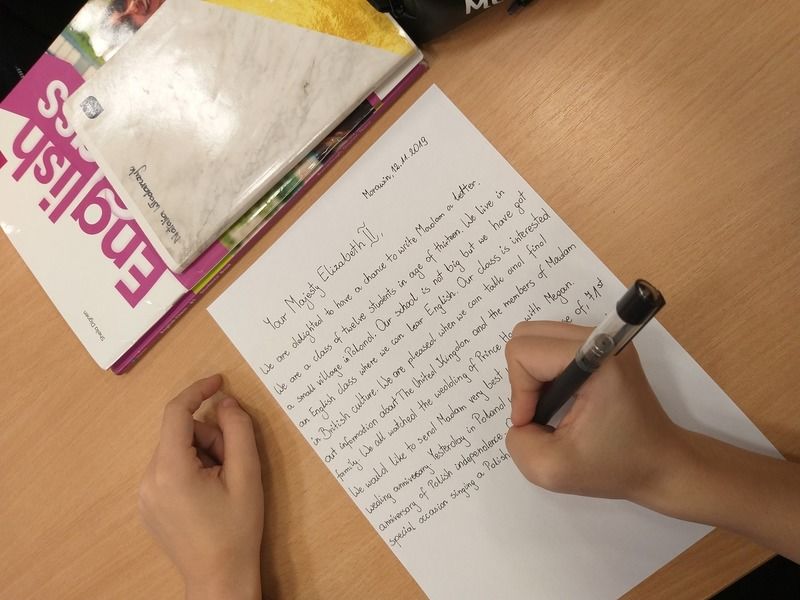 Morawin, 12.11.2019
Your Majesty Elizabeth II,
We are delighted to have a chance to write Madam a letter.
We are a class of twelve students in age of thirteen. We live in
a small village in Poland. Our school is not big but we have got
an English class where we can learn English. Our class is interested
in British culture. We are pleased when we can talk and find
out information about The United Kingdon and the members of Madam
family. We all watched the wedding of Prince with Megan.
We would like to send Madam very best of 71st
weding anniversary. Yesterday in Poland
anniversary of Polish independence.
special occasion singing a Polish
English
Class
Sheila Dignen
Natalia